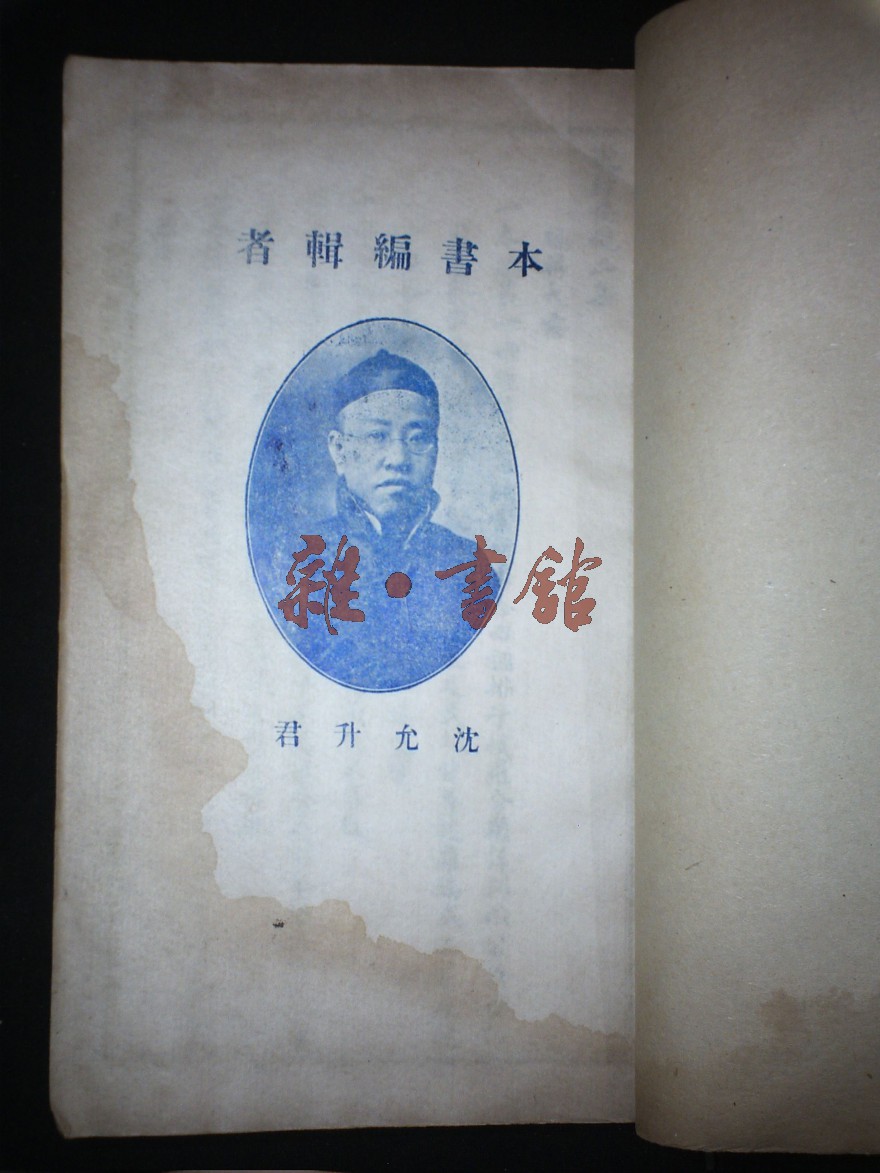 本書編輯者
雜·書館
沈允升君